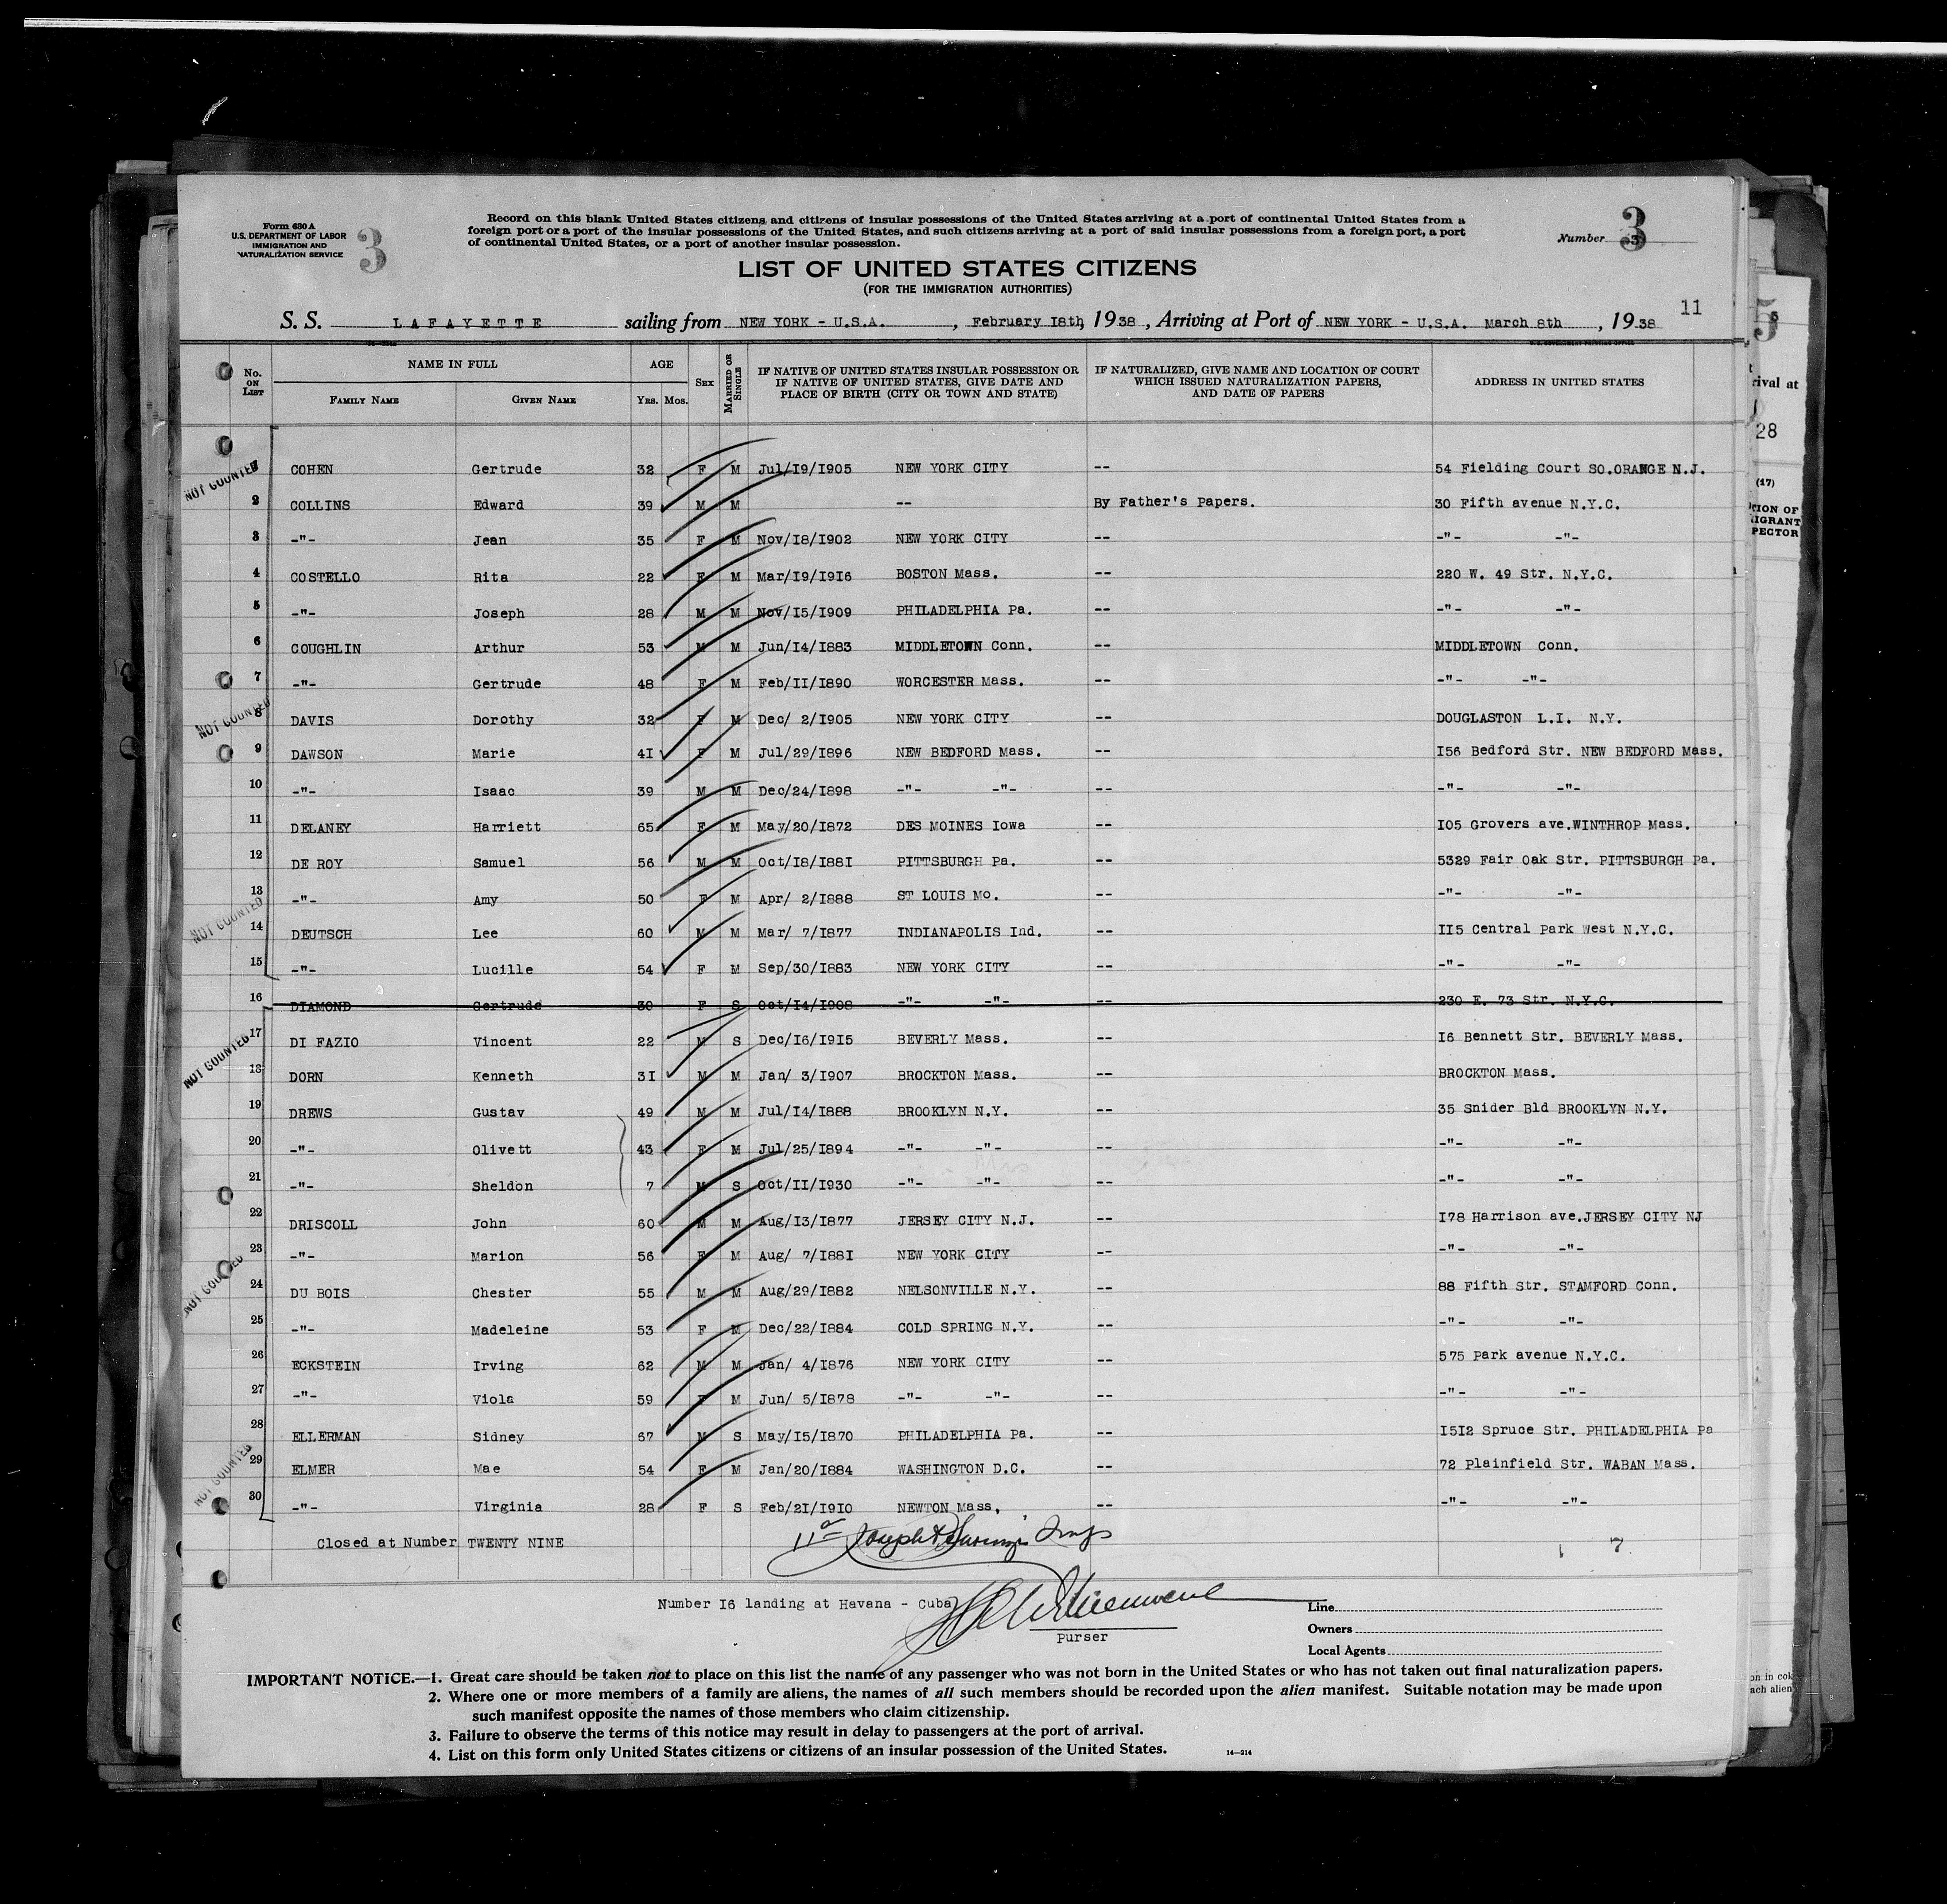 Form 630 A
U.S. DEPARTMENT OF LABOR
IMMIGRATION AND
NATURALIZATION SERVICE
3
Record on this blank United States citizens and citizens of insular possessions of the United States arriving at a port of continental United States from a
foreign port or a port of the insular possessions of the United States, and such citizens arriving at a port of said insular possessions from a foreign port, a port
of continental United States, or a port of another insular possession.
Number 3
LIST OF UNITED STATES CITIZENS
(FOR THE IMMIGRATION AUTHORITIES)
11
S. S. LAFAYETTE sailing from NEW YORK - U.S.A. , February I8th, 1938 , Arriving at Port of NEW YORK - U.S.A. March 8th , 1938
No. ON LIST NAME IN FULL AGE SEX MARRIED OR SINGLE IF NATIVE OF UNITED STATES INSULAR POSSESSION OR IF NATIVE OF UNITED STATES, GIVE DATE AND PLACE OF BIRTH (CITY OR TOWN AND STATE) IF NATURALIZED, GIVE NAME AND LOCATION OF COURT WHICH ISSUED NATURALIZATION PAPERS, AND DATE OF PAPERS ADDRESS IN UNITED STATES
FAMILY NAME GIVEN NAME YRS. MOS.
NOT COUNTED
1 COHEN Gertrude 32 F M Jul/I9/I905 NEW YORK CITY -- 54 Fielding Court SO.ORANGE N.J.
2 COLLINS Edward 39 M M -- By Father's Papers. 30 Fifth avenue N.Y.C.
3 -"- Jean 35 F M Nov/I8/I902 NEW YORK CITY -- -"- -"-
4 COSTELLO Rita 22 F M Mar/I9/I9I6 BOSTON Mass. -- 220 W. 49 Str. N.Y.C.
5 -"- Joseph 28 M M Nov/I5/I909 PHILADELPHIA Pa. -- -"- -"-
6 COUGHLIN Arthur 53 M M Jun/I4/I883 MIDDLETOWN Conn. -- MIDDLETOWN Conn.
7 -"- Gertrude 48 F M Feb/II/I890 WORCESTER Mass. -- -"- -"-
NOT COUNTED
8 DAVIS Dorothy 32 F M Dec/ 2/I905 NEW YORK CITY -- DOUGLASTON L.I. N.Y.
9 DAWSON Marie 4I F M Jul/29/I896 NEW BEDFORD Mass. -- I56 Bedford Str. NEW BEDFORD Mass.
10 -"- Isaac 39 M M Dec/24/I898 -"- -"- -- -"- -"-
11 DELANEY Harriett 65 F M May/20/I872 DES MOINES Iowa -- I05 Grovers ave.WINTHROP Mass.
12 DE ROY Samuel 56 M M Oct/I8/I88I PITTSBURGH Pa. -- 5329 Fair Oak Str. PITTSBURGH Pa.
13 -"- Amy 50 F M Apr/ 2/I888 ST LOUIS Mo. -- -"- -"-
NOT COUNTED
14 DEUTSCH Lee 60 M M Mar/ 7/I877 INDIANAPOLIS Ind. -- II5 Central Park West N.Y.C.
15 -"- Lucille 54 F M Sep/30/I883 NEW YORK CITY -- -"- -"-
16 DIAMOND Gertrude 30 F S Oct/I4/I908 -"- -"- -- 230 E. 73 Str. N.Y.C.
NOT COUNTED
17 DI FAZIO Vincent 22 M S Dec/I6/I9I5 BEVERLY Mass. -- I6 Bennett Str. BEVERLY Mass.
18 DORN Kenneth 3I M M Jan/ 3/I907 BROCKTON Mass. -- BROCKTON Mass.
19 DREWS Gustav 49 M M Jul/I4/I888 BROOKLYN N.Y. -- 35 Snider Bld BROOKLYN N.Y.
20 -"- Olivett 43 F M Jul/25/I894 -"- -"- -- -"- -"-
21 -"- Sheldon 7 M S Oct/II/I930 -"- -"- -- -"- -"-
22 DRISCOLL John 60 M M Aug/I3/I877 JERSEY CITY N.J. -- I78 Harrison ave.JERSEY CITY NJ
23 -"- Marion 56 F M Aug/ 7/I88I NEW YORK CITY -- -"- -"-
NOT COUNTED
24 DU BOIS Chester 55 M M Aug/29/I882 NELSONVILLE N.Y. -- 88 Fifth Str. STAMFORD Conn.
25 -"- Madeleine 53 F M Dec/22/I884 COLD SPRING N.Y. -- -"- -"-
26 ECKSTEIN Irving 62 M M Jan/ 4/I876 NEW YORK CITY -- 575 Park avenue N.Y.C.
27 -"- Viola 59 F M Jun/ 5/I878 -"- -"- -- -"- -"-
28 ELLERMAN Sidney 67 M S May/I5/I870 PHILADELPHIA Pa. -- I5I2 Spruce Str. PHILADELPHIA Pa
NOT COUNTED
29 ELMER Mae 54 F M Jan/20/I884 WASHINGTON D.C. -- 72 Plainfield Str. WABAN Mass.
30 -"- Virginia 28 F S Feb/2I/I9I0 NEWTON Mass. -- -"- -"-
Closed at Number TWENTY NINE
7
Number I6 landing at Havana - Cuba
Purser
Line
Owners
Local Agents
IMPORTANT NOTICE.—1. Great care should be taken not to place on this list the name of any passenger who was not born in the United States or who has not taken out final naturalization papers.
2. Where one or more members of a family are aliens, the names of all such members should be recorded upon the alien manifest. Suitable notation may be made upon
such manifest opposite the names of those members who claim citizenship.
3. Failure to observe the terms of this notice may result in delay to passengers at the port of arrival.
4. List on this form only United States citizens or citizens of an insular possession of the United States.
14—214
5
rival at
28
(17)
PECTOR